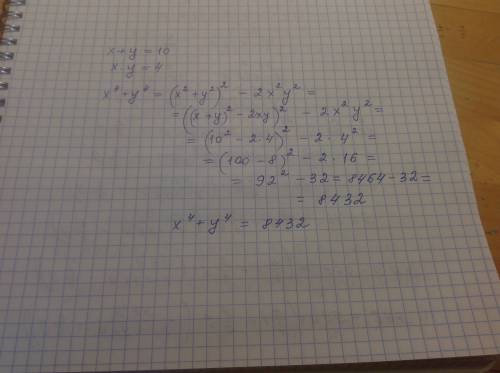 x + y = 10
x · y = 4
x⁴ + y⁴ = (x² + y²)² - 2x²y² =
= ((x + y)² - 2xy)² - 2x²y² =
= (10² - 2·4)² - 2·4² =
= (100 - 8)² - 2·16 =
= 92² - 32 = 8464 - 32 =
= 8432
x⁴ + y⁴ = 8432